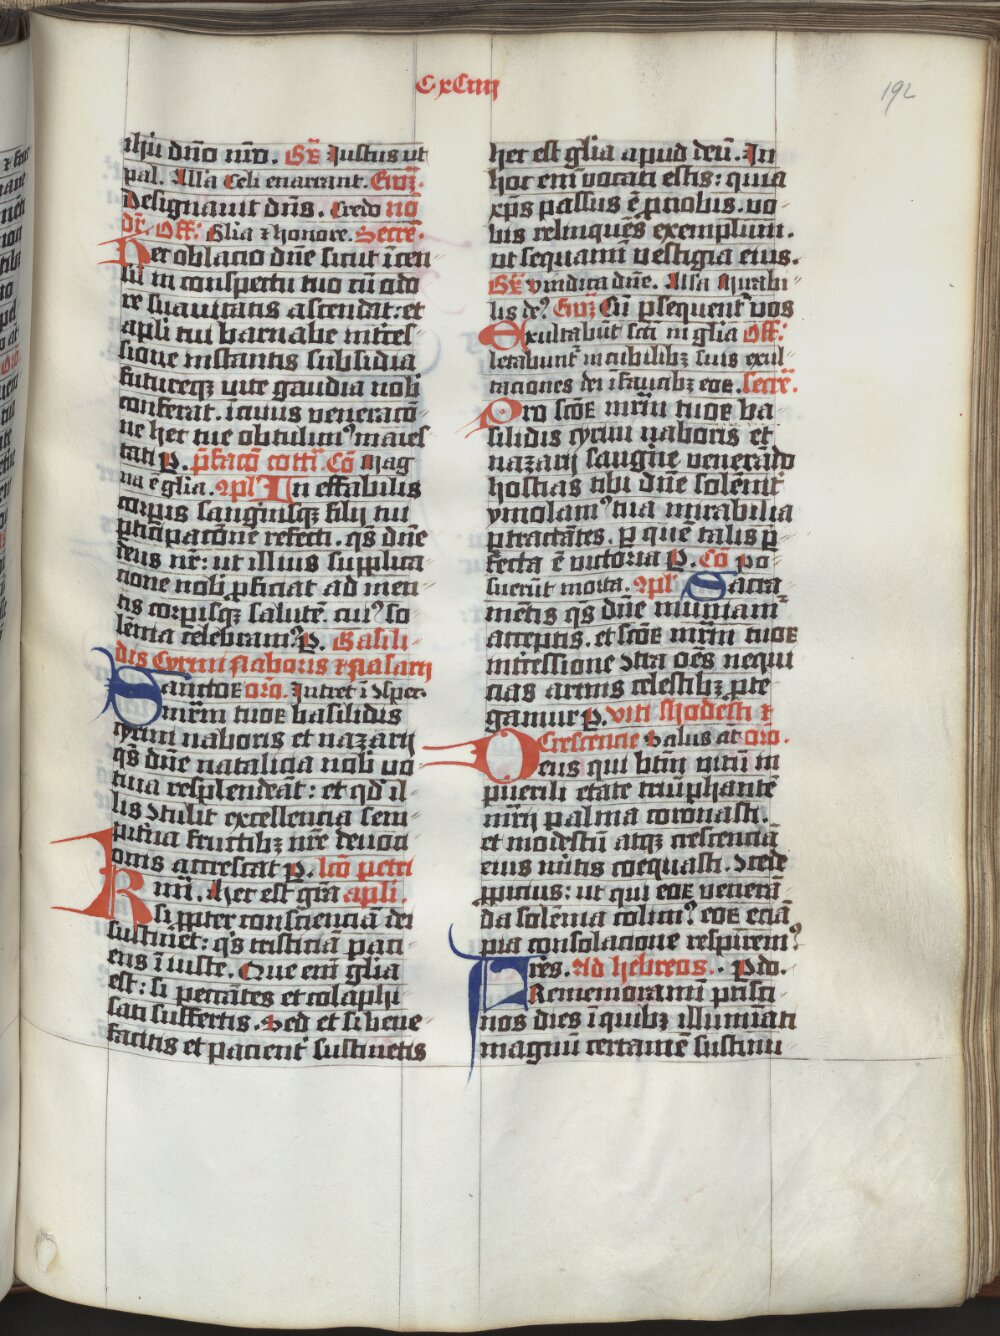 CxCiiij
192
ihū dño nr̄o. Gꝛ̄ Justus ut
pal. Alla Celi enarrant. Ewꝫ.
Designauit dn̄s. Credo nō
dr̄. Off: Glia ⁊ honore. Secre.
Per oblacio dn̄e sicut īcen
sū in conspectu tuo cū odo
re suauitatis ascendat: et
apli tui barnabe int̄ces
sione instantis subsidia
futureqꝫ uite gaudia nob̄
conferat. ī cuius veneracō
ne hec tue obtulimꝰ maies
tati P. p̄facō cottī. Cō Mag
na ē glia. ꝯpl In effabilis
corpis sanguīsqꝫ filij tui
ꝑticipacōne refecti. qs̄ dn̄e
deus nr̄: ut illius supplica
cione nob̄ ꝓficiat ad men
tis corpisqꝫ salutē. cuiꝰ so
lēnia celebramꝰ. P. Basili
dis Cyrini Naboris ⁊ Nasarij
Sanctoꝝ oro. Intret ī ↄspec
mr̄m tuoꝝ basilidis
cyrini naboris et nazarij
qs̄ dn̄e natalicia nob̄ vo
tiua resplendeāt: et qd̄ il
lis ↄtulit excellencia sem
pit̄na fructibꝫ nr̄e deuoci
onis accrescat P. lcō petri
Kmi. Hec est gr̄a apli.
si ꝓpter conscienciā dei
sustinet: qs̄ tristiciā paci
ens ī iuste. Que em̄ glia
est: si peccātes et colaphi
sati suffertis. Sed et si bene
facitis et pacient̄ sustinetis
hec est glia apud deū. In
hoc em̄ vocati estis: quia
xp̄s passus ē ꝓ nobis. vo
bis relinquēs exemplum.
ut sequamī vestigia eius.
Gꝛ̄ Vindica dn̄e. Alla Mirabi
lis deꝰ. Ewꝫ Cū ꝑsequent̄ vos
Exultabūt sc̄ti in glia Off:
letabunt̄ in cubilibꝫ suis exul
taciones dei ī faucibꝫ eoꝝ. secre.
Pro sc̄oꝝ mr̄m tuoꝝ ba
silidis cyrini naboris et
nazarij sanguīe venerādo
hostias tibi dn̄e solēnit̄
ymolamꝰ tua mirabilia
ꝑtractātes. ꝑ quē talis ꝑ
fecta ē victoria P. Cō Po
suerūt morta. ꝯpl Sacra
mētis qs̄ dn̄e muniam̄
acceptis. et sc̄oꝝ mr̄m tuoꝝ
int̄cessione ↄtra oēs nequi
cias armis celestibꝫ ꝓte
gamur P. Viti Modesti ⁊
Crescencie Salus aūt oro.
Deus qui btm̄ vitū in
puerili etate triūphantē
mr̄ij palma coronasti.
et modestū atqꝫ crescenciā
eius mitis coequasti. ↄcede
ꝓpicius: ut qui eoꝝ venerā
da solēnia colimꝰ. eoꝝ eciā
pia consolacione respiremꝰ
Fres. Ad hebreos. P do.
Rememoramī pristi
nos dies ī quibꝫ illumīati
magnū certamē sustinu